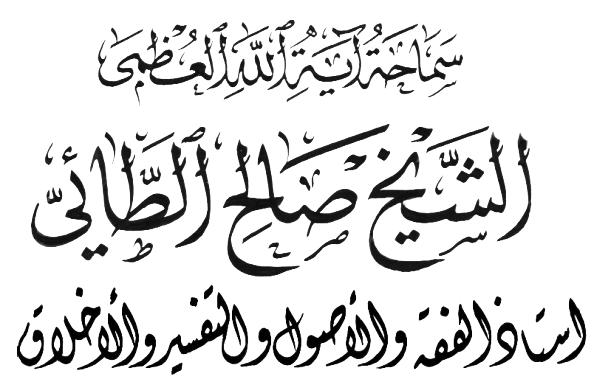 سَمَاحَةُ آيَةِ ٱللهِ ٱلعُظْمَى
الشَّيْخ صَالِح ٱلطَّائِيّ
استاذ الفقه والأصول والتفسير والأخلاق